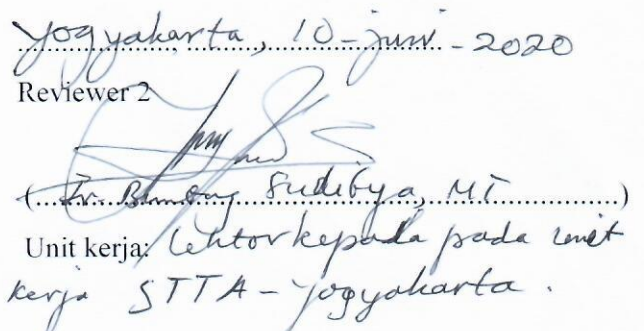 Yogyakarta, 10-juni-2020
Reviewer 2
(Ir. Bambang Sudibya, MT)
Unit kerja: Lektor kepada pada unit
kerja STTA-Yogyakarta.